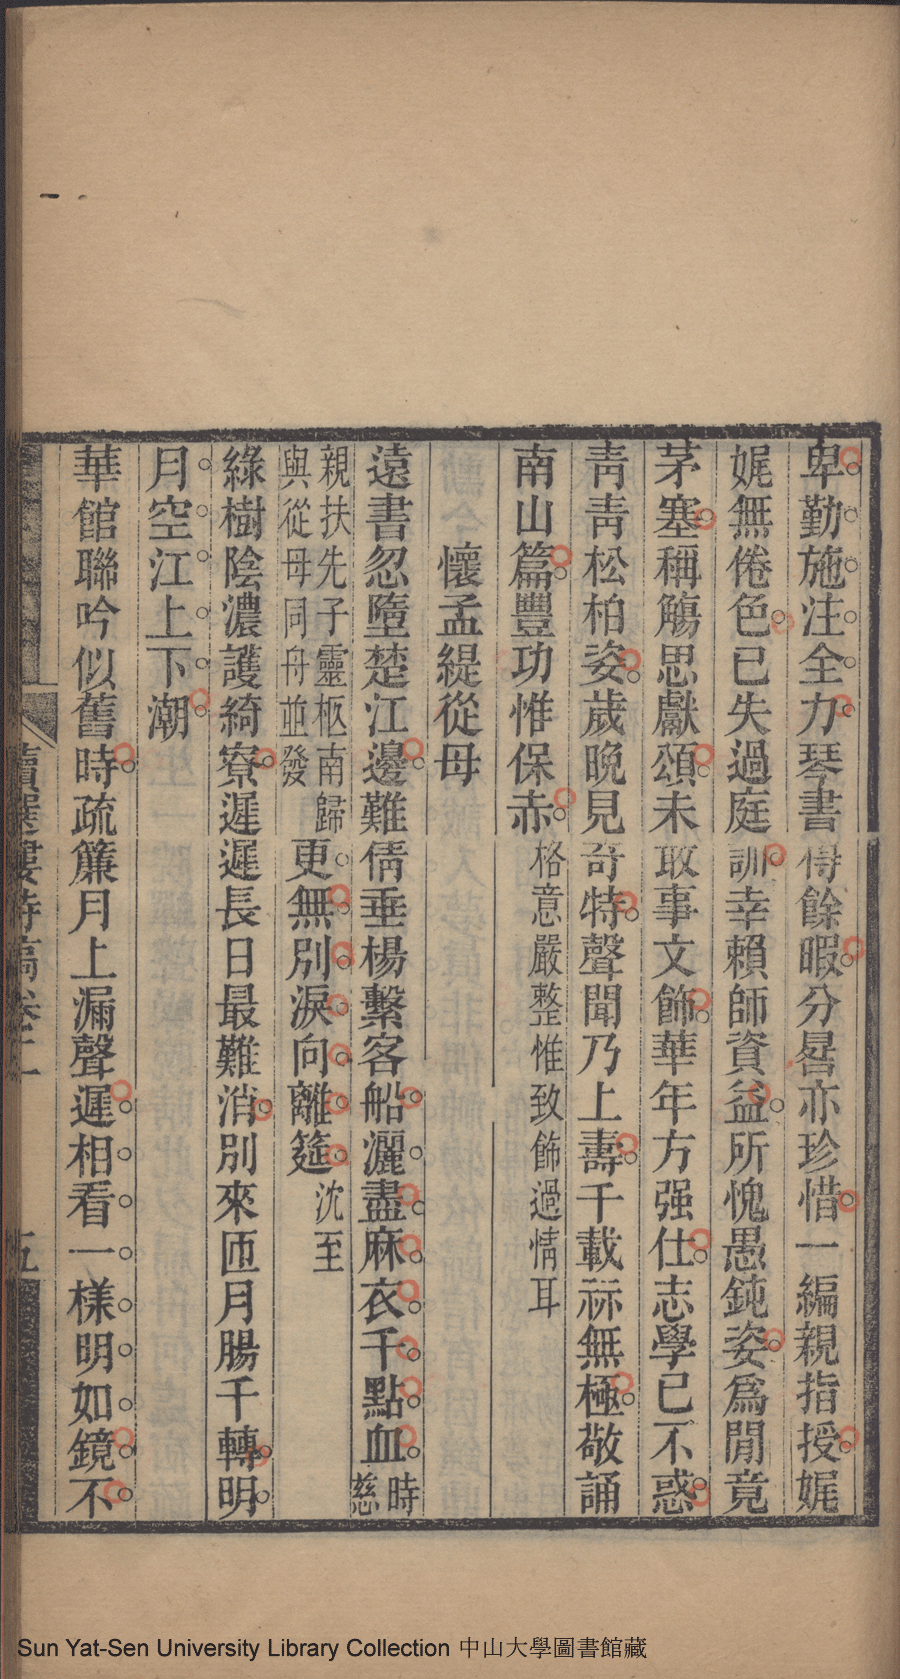 卑勤施注全力琴書得餘暇分晷亦珍惜一編親指授娓
娓無倦色已失過庭訓幸賴師資益所愧愚鈍姿爲閒竟
茅塞稱觴思獻頌未敢事文飾華年方强仕志學已不惑
靑靑松柏姿歲晚見奇特聲聞乃上壽千載祘無極敬誦
南山篇豐功惟保赤
格意嚴整惟致飾過情耳
懷孟緹從母
遠書忽墮楚江邊難倩垂楊繫客船灑盡麻衣千點血
時慈
親扶先子靈柩南歸
與從母同舟並發
更無別淚向離筵
沈至
綠樹陰濃護綺寮遲遲長日最難消別來匝月腸千轉明
月空江上下潮
華館聯吟似舊時疏簾月上漏聲遲相看一樣明如鏡不
讀選樓詩稿卷二
五
Sun Yat-Sen University Library Collection 中山大學圖書館藏